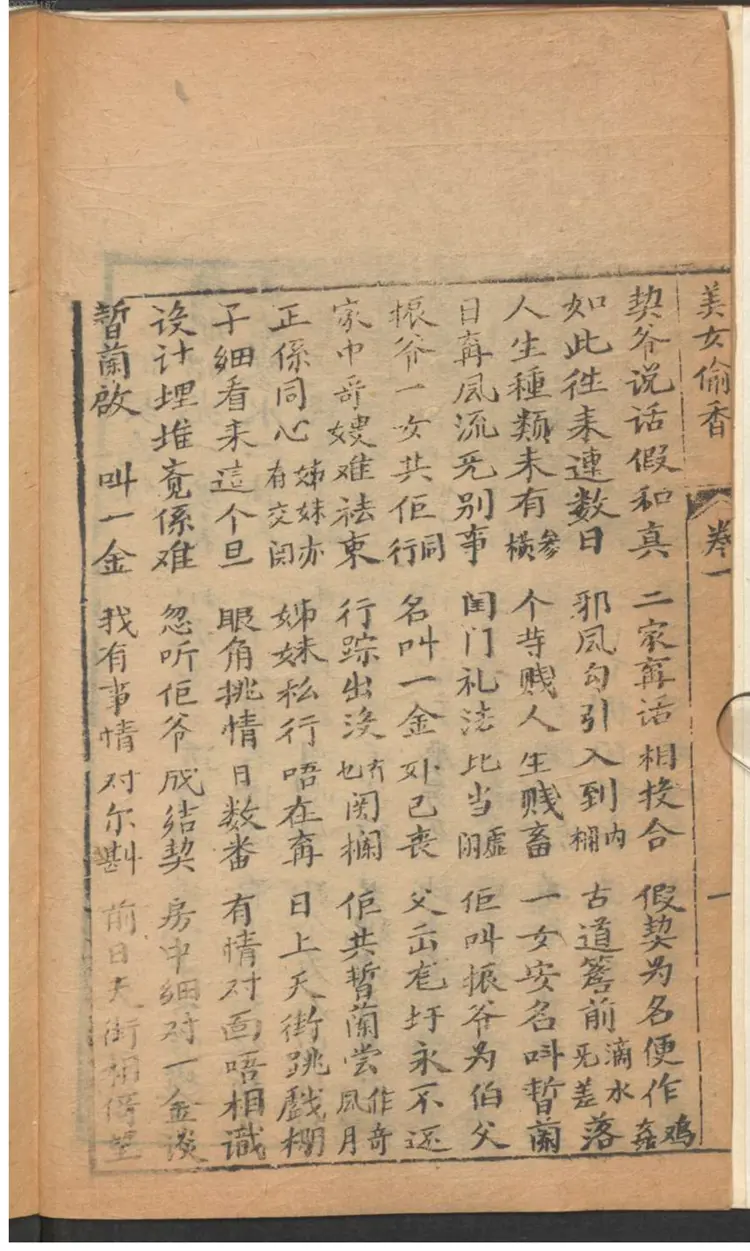 美女偷香 卷一 一
契爷说话假和真 二家斉话相投合 假契为名便作鸡姦
如此徃来連数日 邪风勾引入到内棚 古道簷前滴水旡差落
人生種類未有参横 个寺贱人生贱畜 一女安名呌晢蘭
日斉风流旡别事 闺门礼法比当虚闲 佢叫振爷为伯父
振爷一女共佢同行 名叫一金 父 圩永不还
家中哥嫂难祛束 行踪出没冇乜関攔 佢共晢蘭尝作奇风月
正係同心姊妹亦有交関 姊妹私行唔在斉 日上天街跳戯棚
子細看来這个旦 眼角挑情日数番 有情对面唔相識
设计埋堆竟係难 忽听佢爷成结契 房中细对一金谈
晢蘭啟 叫一金 我有事情对尔斟 前日天街相